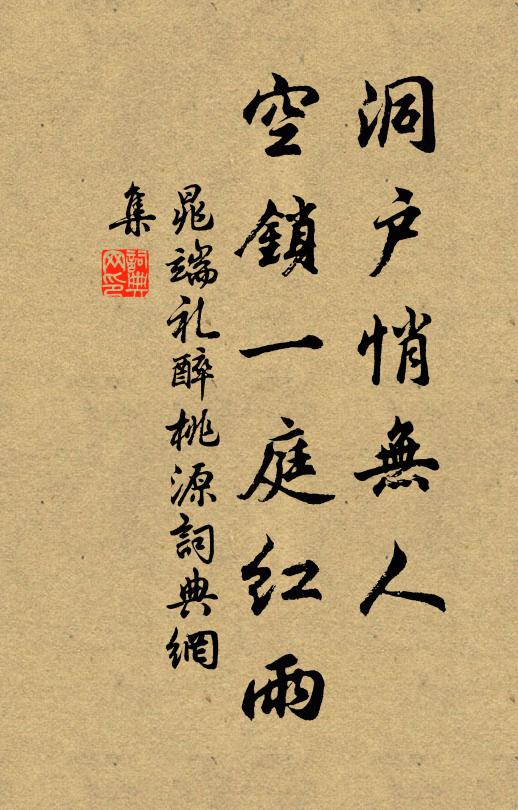 洞户悄無人
空鎖一庭紅雨
晁端礼醉桃源詞典網
集
詞典
网印